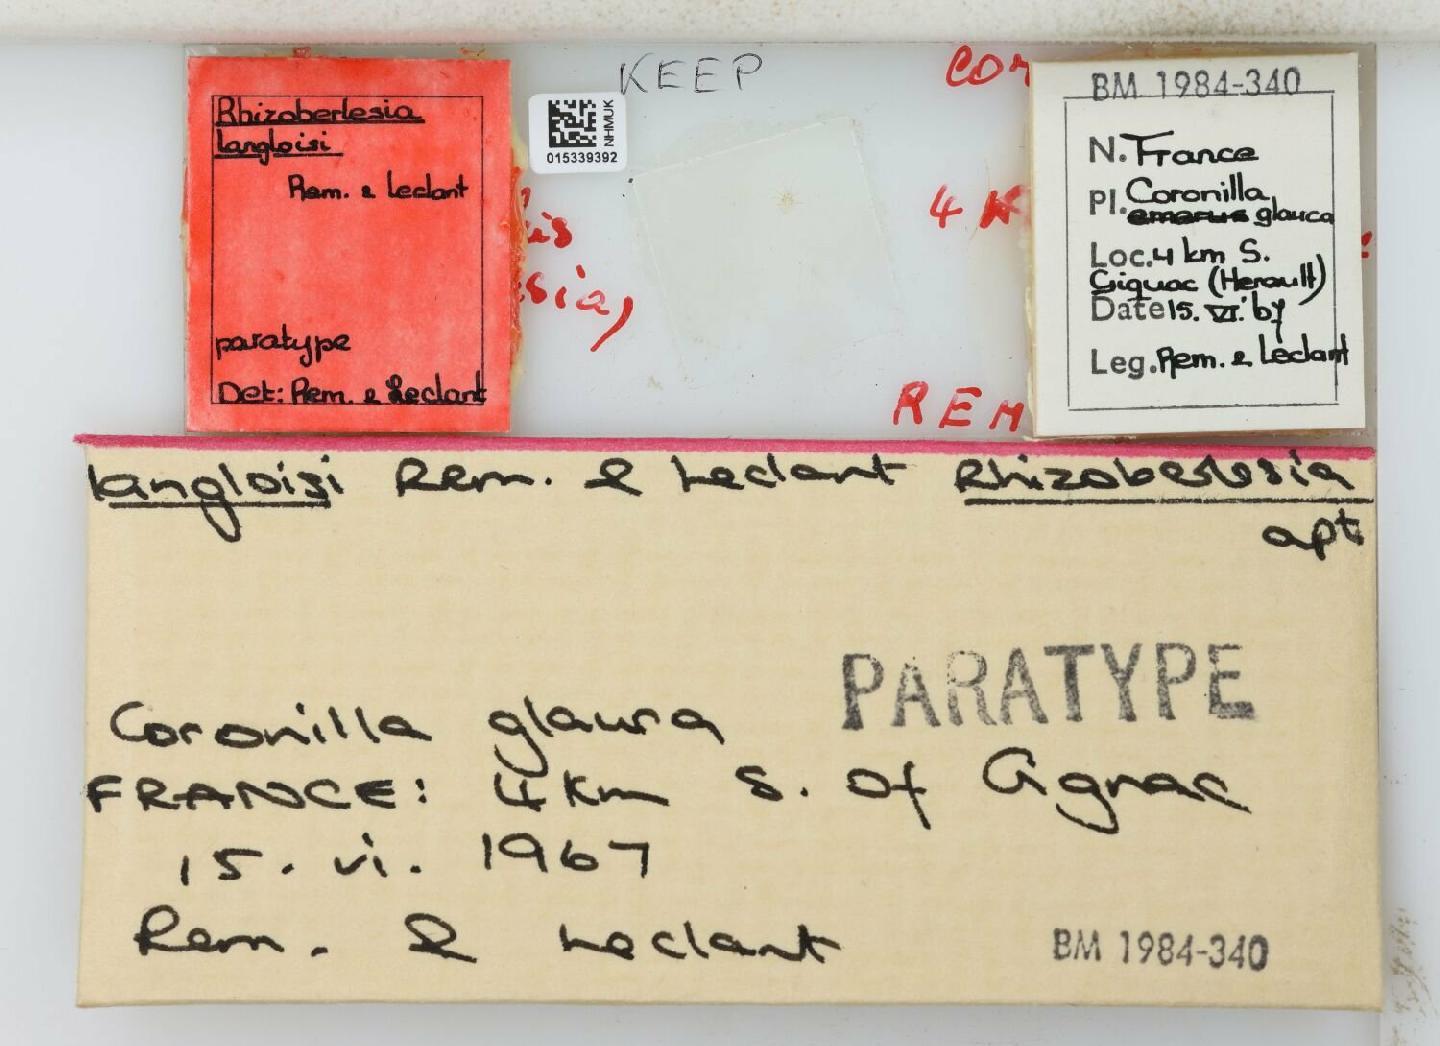 KEEP
Rhizoberlesia
langloisi
Rem. & Leclant
paratype
Det: Rem. & Leclant
NHMUK
015339392
4 K
REM
BM 1984-340
N. France
Pl. Coronilla
emerus glauca
Loc. 4 km S.
Gignac (Herault)
Date 15. VI. 67
Leg. Rem. & Leclant
langloisi Rem. & Leclant Rhizoberlesia
apt
PARATYPE
Coronilla glauca
FRANCE: 4km S. of Gignac
15. vi. 1967
Rem. & Leclant
BM 1984-340